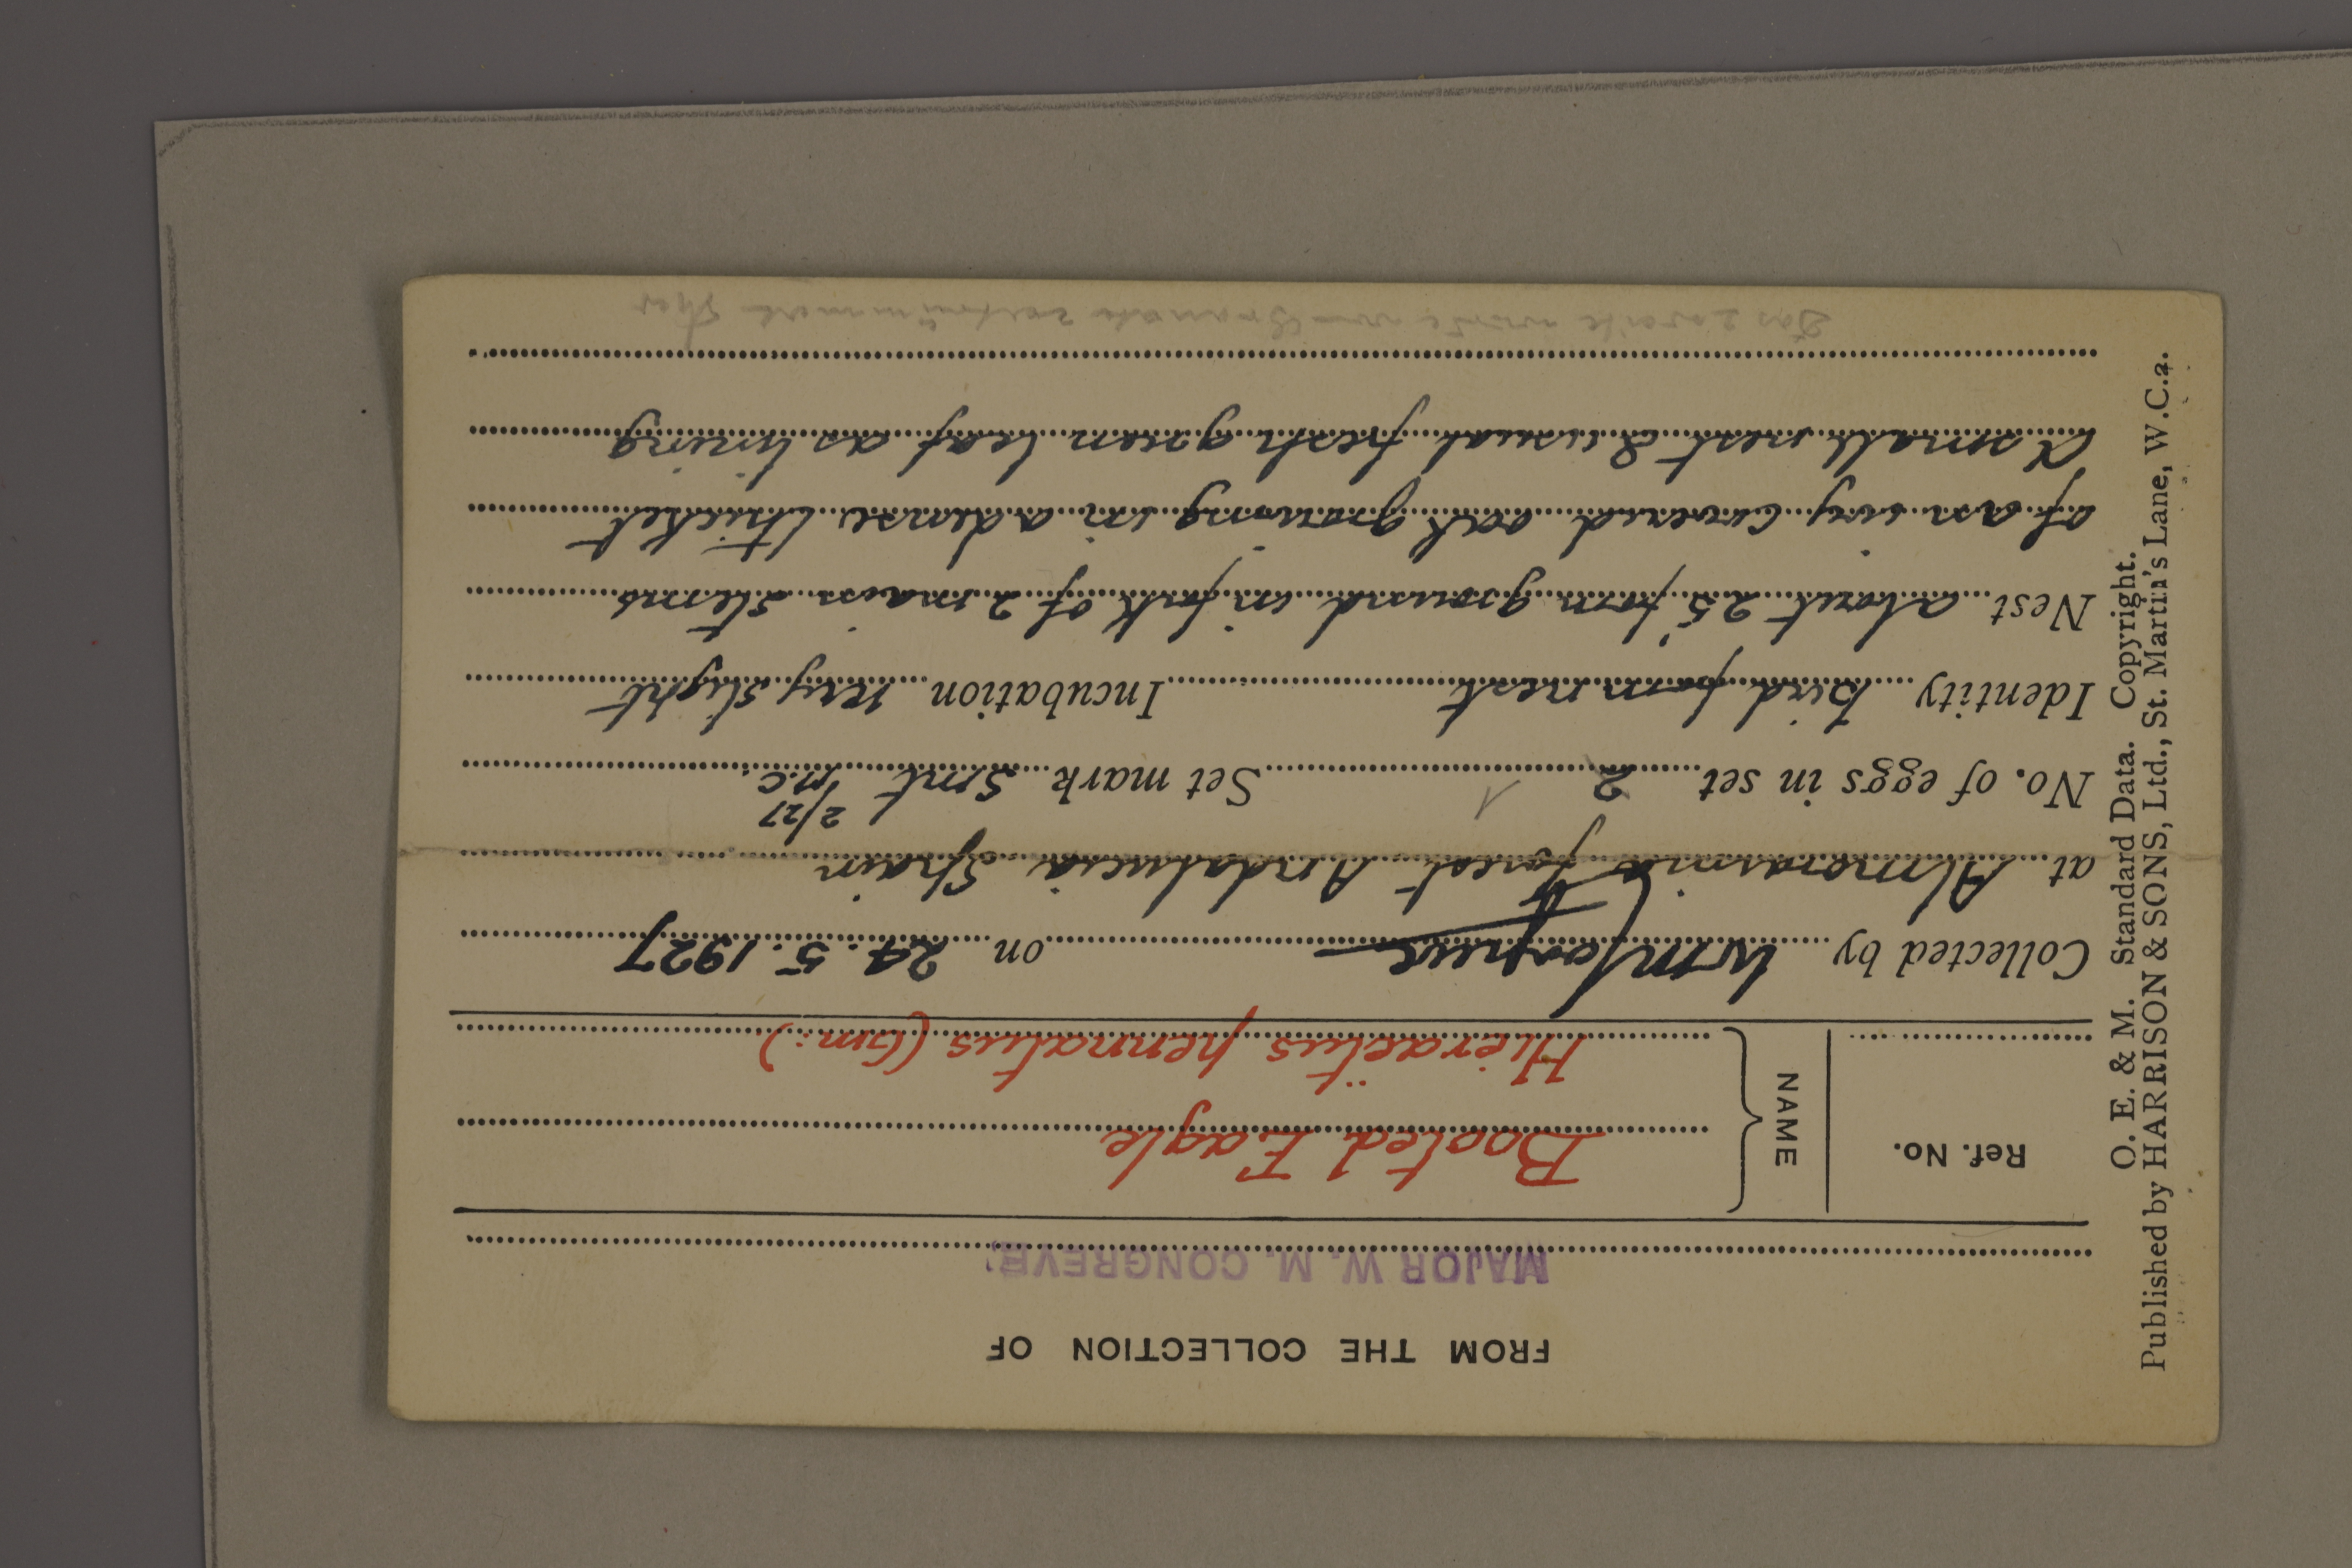 FROM THE COLLECTION OF
MAJOR W. M. CONGREVE,
Ref. No.
NAME
Booted Eagle
Hieraëtus pennatus (Gm:)
Collected by WMCongreve on 24.5.1927
at Almoraima Forest Andalucia Spain
No. of eggs in set 2 1 Set mark Smt 2/27 M.C.
Identity Bird from nest Incubation very slight
Nest about 25' from ground in fork of 2 main stems
of an ivy covered oak growing in a dense thicket
A small nest & usual fresh green leaf as lining
Das zweite wurde von
O. E. & M. Standard Data. Copyright.
Published by HARRISON & SONS, Ltd., St. Martin's Lane, W.C.2.